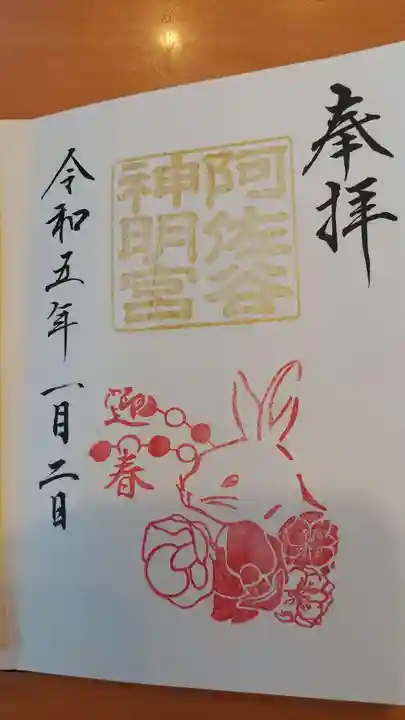 奉拝
阿佐谷
神明宮
迎
春
令和五年一月二日